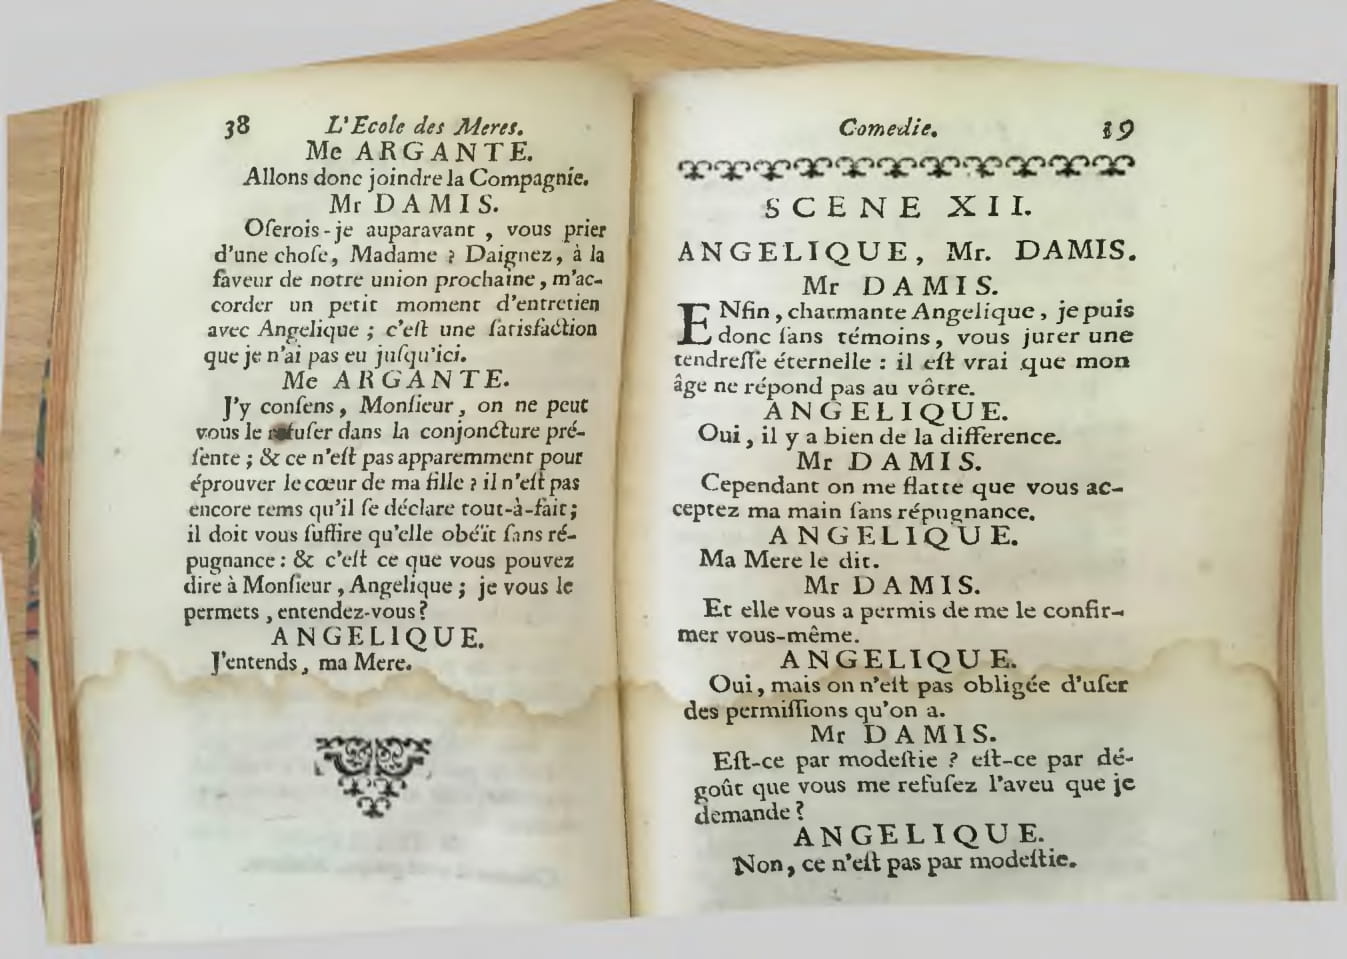 38 L'Ecole des Meres.
Me ARGANTE.
Allons donc joindre la Compagnie.
Mr DAMIS.
Oſerois-je auparavant, vous prier
d'une choſe, Madame ? Daignez, à la
faveur de notre union prochaine, m'ac-
corder un petit moment d'entretien
avec Angelique ; c'eſt une ſatisfaction
que je n'ai pas eu juſqu'ici.
Me ARGANTE.
J'y conſens, Monſieur, on ne peut
vous le refuſer dans la conjoncture pré-
ſente ; & ce n'eſt pas apparemment pour
éprouver le cœur de ma fille ? il n'eſt pas
encore tems qu'il ſe déclare tout-à-fait ;
il doit vous ſuffire qu'elle obéït ſans ré-
pugnance : & c'eſt ce que vous pouvez
dire à Monſieur, Angelique ; je vous le
permets, entendez-vous ?
ANGELIQUE.
J'entends, ma Mere.
Comedie. 39
SCENE XII.
ANGELIQUE, Mr. DAMIS.
Mr DAMIS.
ENfin, charmante Angelique, je puis
donc ſans témoins, vous jurer une
tendreſſe éternelle : il eſt vrai que mon
âge ne répond pas au vôtre.
ANGELIQUE.
Oui, il y a bien de la difference.
Mr DAMIS.
Cependant on me flatte que vous ac-
ceptez ma main ſans répugnance.
ANGELIQUE.
Ma Mere le dit.
Mr DAMIS.
Et elle vous a permis de me le confir-
mer vous-même.
ANGELIQUE.
Oui, mais on n'eſt pas obligée d'uſer
des permiſſions qu'on a.
Mr DAMIS.
Eſt-ce par modeſtie ? eſt-ce par dé-
goût que vous me refuſez l'aveu que je
demande ?
ANGELIQUE.
Non, ce n'eſt pas par modeſtie.